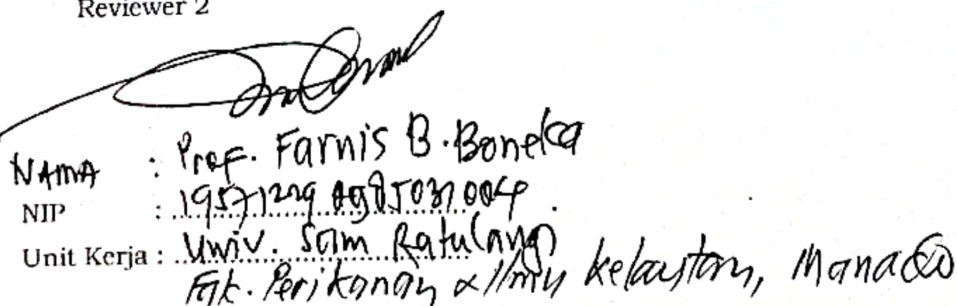 Reviewer 2
NAMA : Prof. Farnis B. Boneka
NIP : 19571229 198503 1 004
Unit Kerja : Univ. Sam Ratulangi
Fak. Perikanan & Ilmu Kelautan, Manado